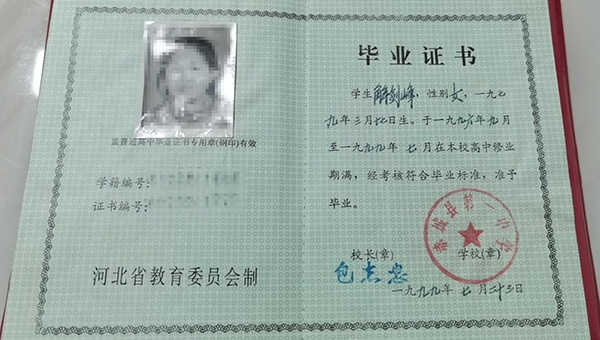 盖普通高中毕业证书专用章(钢印)有效
学籍编号:
证书编号:
河北省教育委员会制
毕业证书
学生解剑峰,性别女,一九七
九年三月 日生。于一九九六年九月
至一九九九年七月在本校高中修业
期满,经考核符合毕业标准,准予
毕业。
城县第一中学
校长(章) 学校(章)
包志
一九九九年七月二十三日